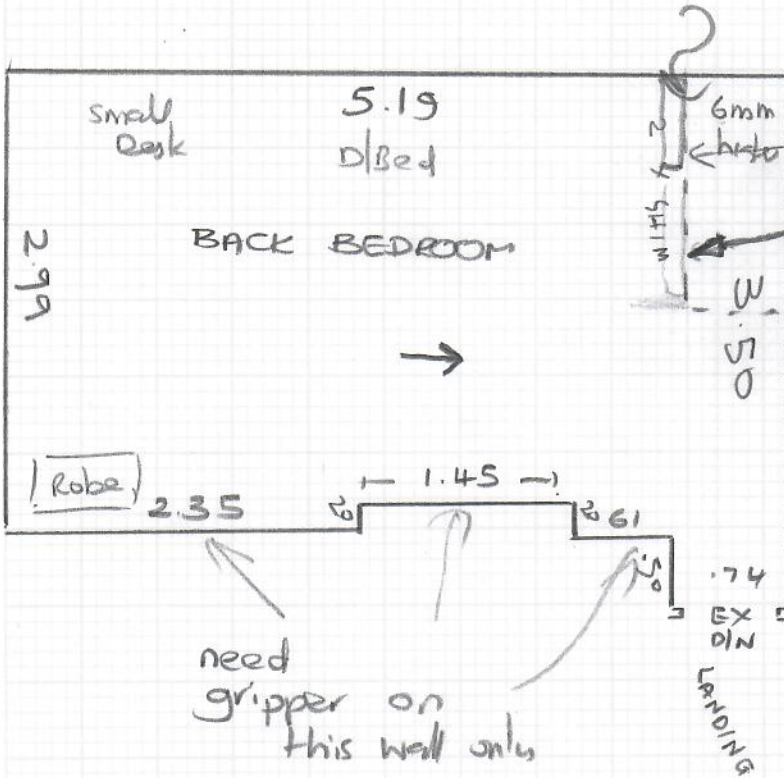 small
Desk
5.19
D/Bed
2
6mm
BACK BEDROOM
2.99
3.50
Robe
2.35
1.45
20
20
61
.50
.74
EX
D/N
LANDING
need
gripper on
this wall only